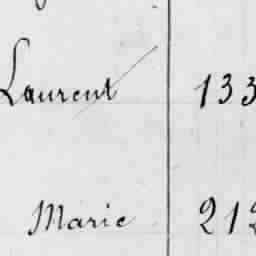 Laurent 133
Marie 212